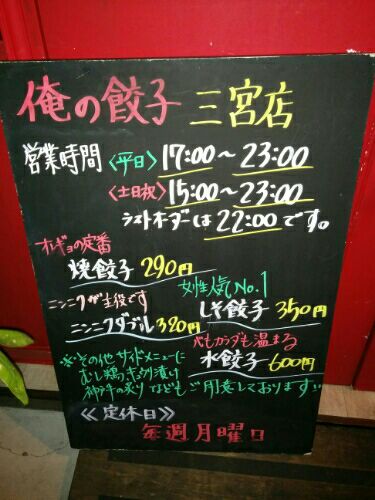 俺の餃子 三宮店
営業時間 〈平日〉 17:00～23:00
〈土日祝〉 15:00～23:00
ラストオーダーは 22:00 です。
オレギョの定番
焼餃子 290円
女性人気No.1
しそ餃子 350円
ニンニクが主役です
ニンニクダブル 320円
心もカラダも温まる
水餃子 600円
※その他サイドメニューに
むし鶏、キュウリ漬け
などもご用意しております。
≪定休日≫
毎週月曜日